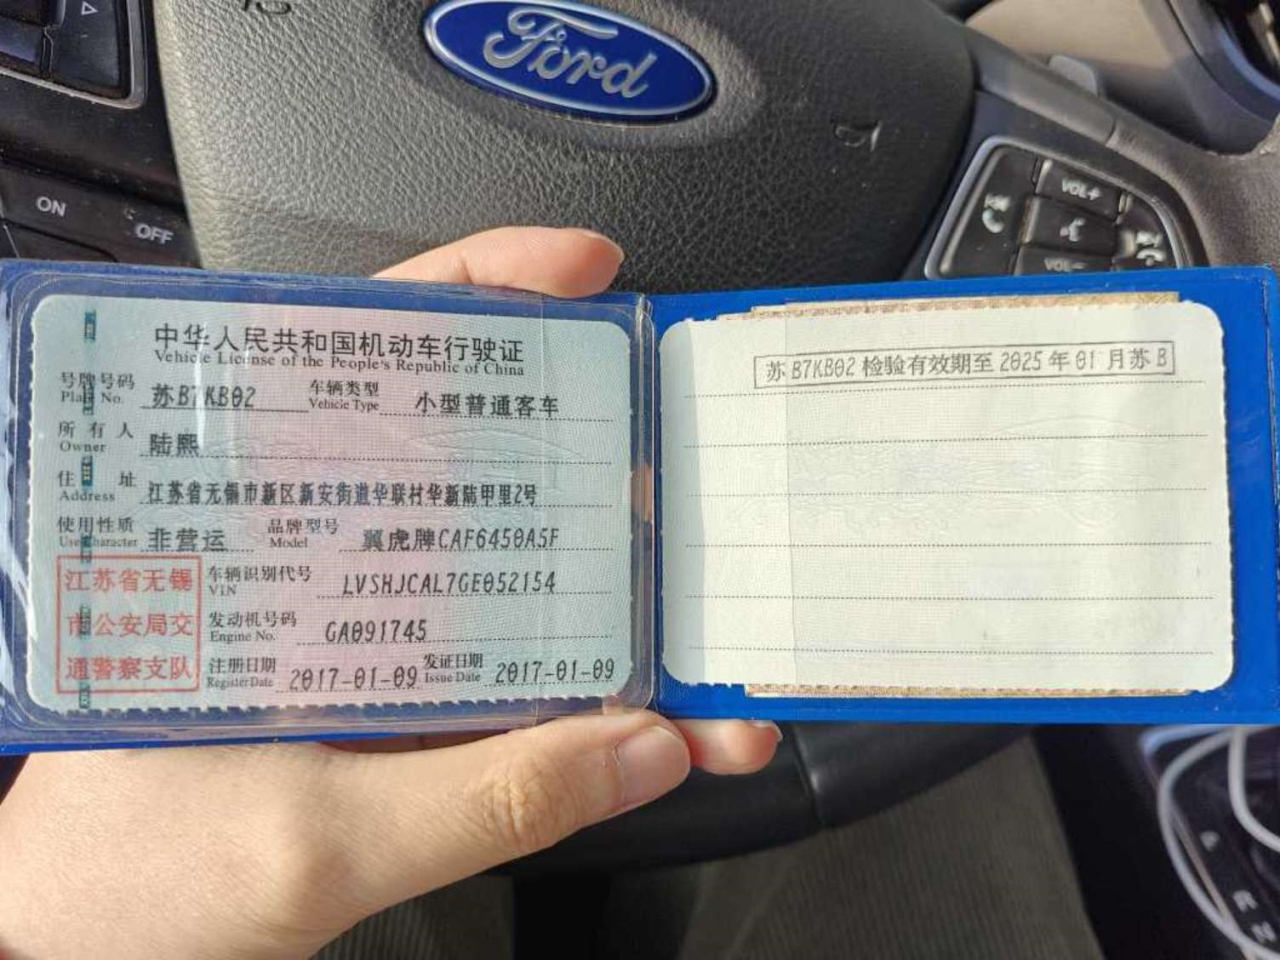 Ford
ON
OFF
VOL+
VOL-
中华人民共和国机动车行驶证
Vehicle License of the People's Republic of China
号牌号码 苏B7KB02 车辆类型 小型普通客车
Plate No. Vehicle Type
所有人 陆熙
Owner
住址 江苏省无锡市新区新安街道华联村华新陆甲里2号
Address
使用性质 非营运 品牌型号 翼虎牌CAF6450A5F
Use Character Model
车辆识别代号 LVSHJCAL7GE052154
VIN
发动机号码 GA091745
Engine No.
注册日期 2017-01-09 发证日期 2017-01-09
Register Date Issue Date
江苏省无锡
市公安局交
通警察支队
苏B7KB02检验有效期至2025年01月苏B